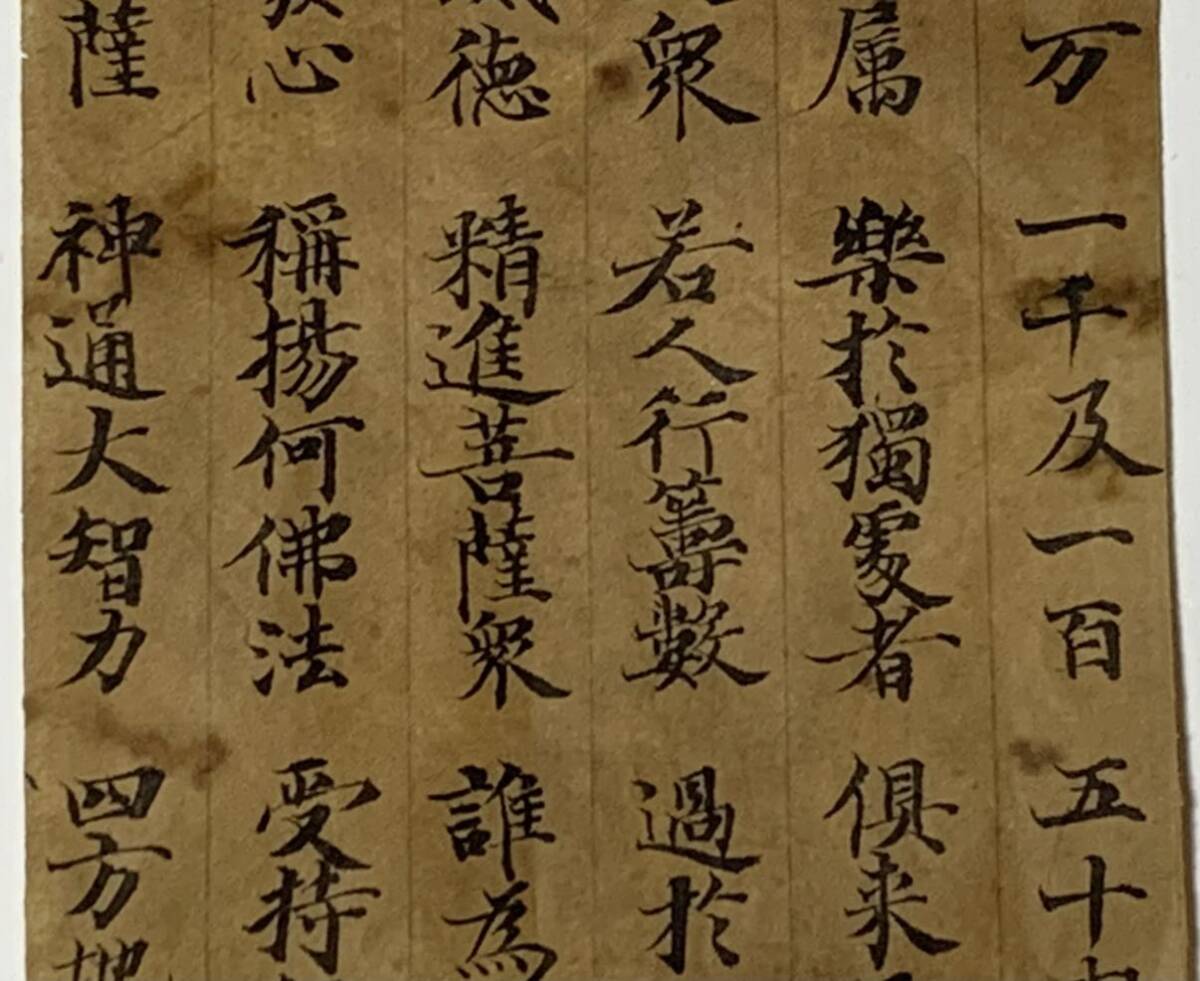 万 一千及一百 五十
属 樂於獨處者 俱来
衆 若人行籌數 過於
德 精進菩薩衆 誰為
心 稱揚何佛法 受持
薩 神通大智力 四方地